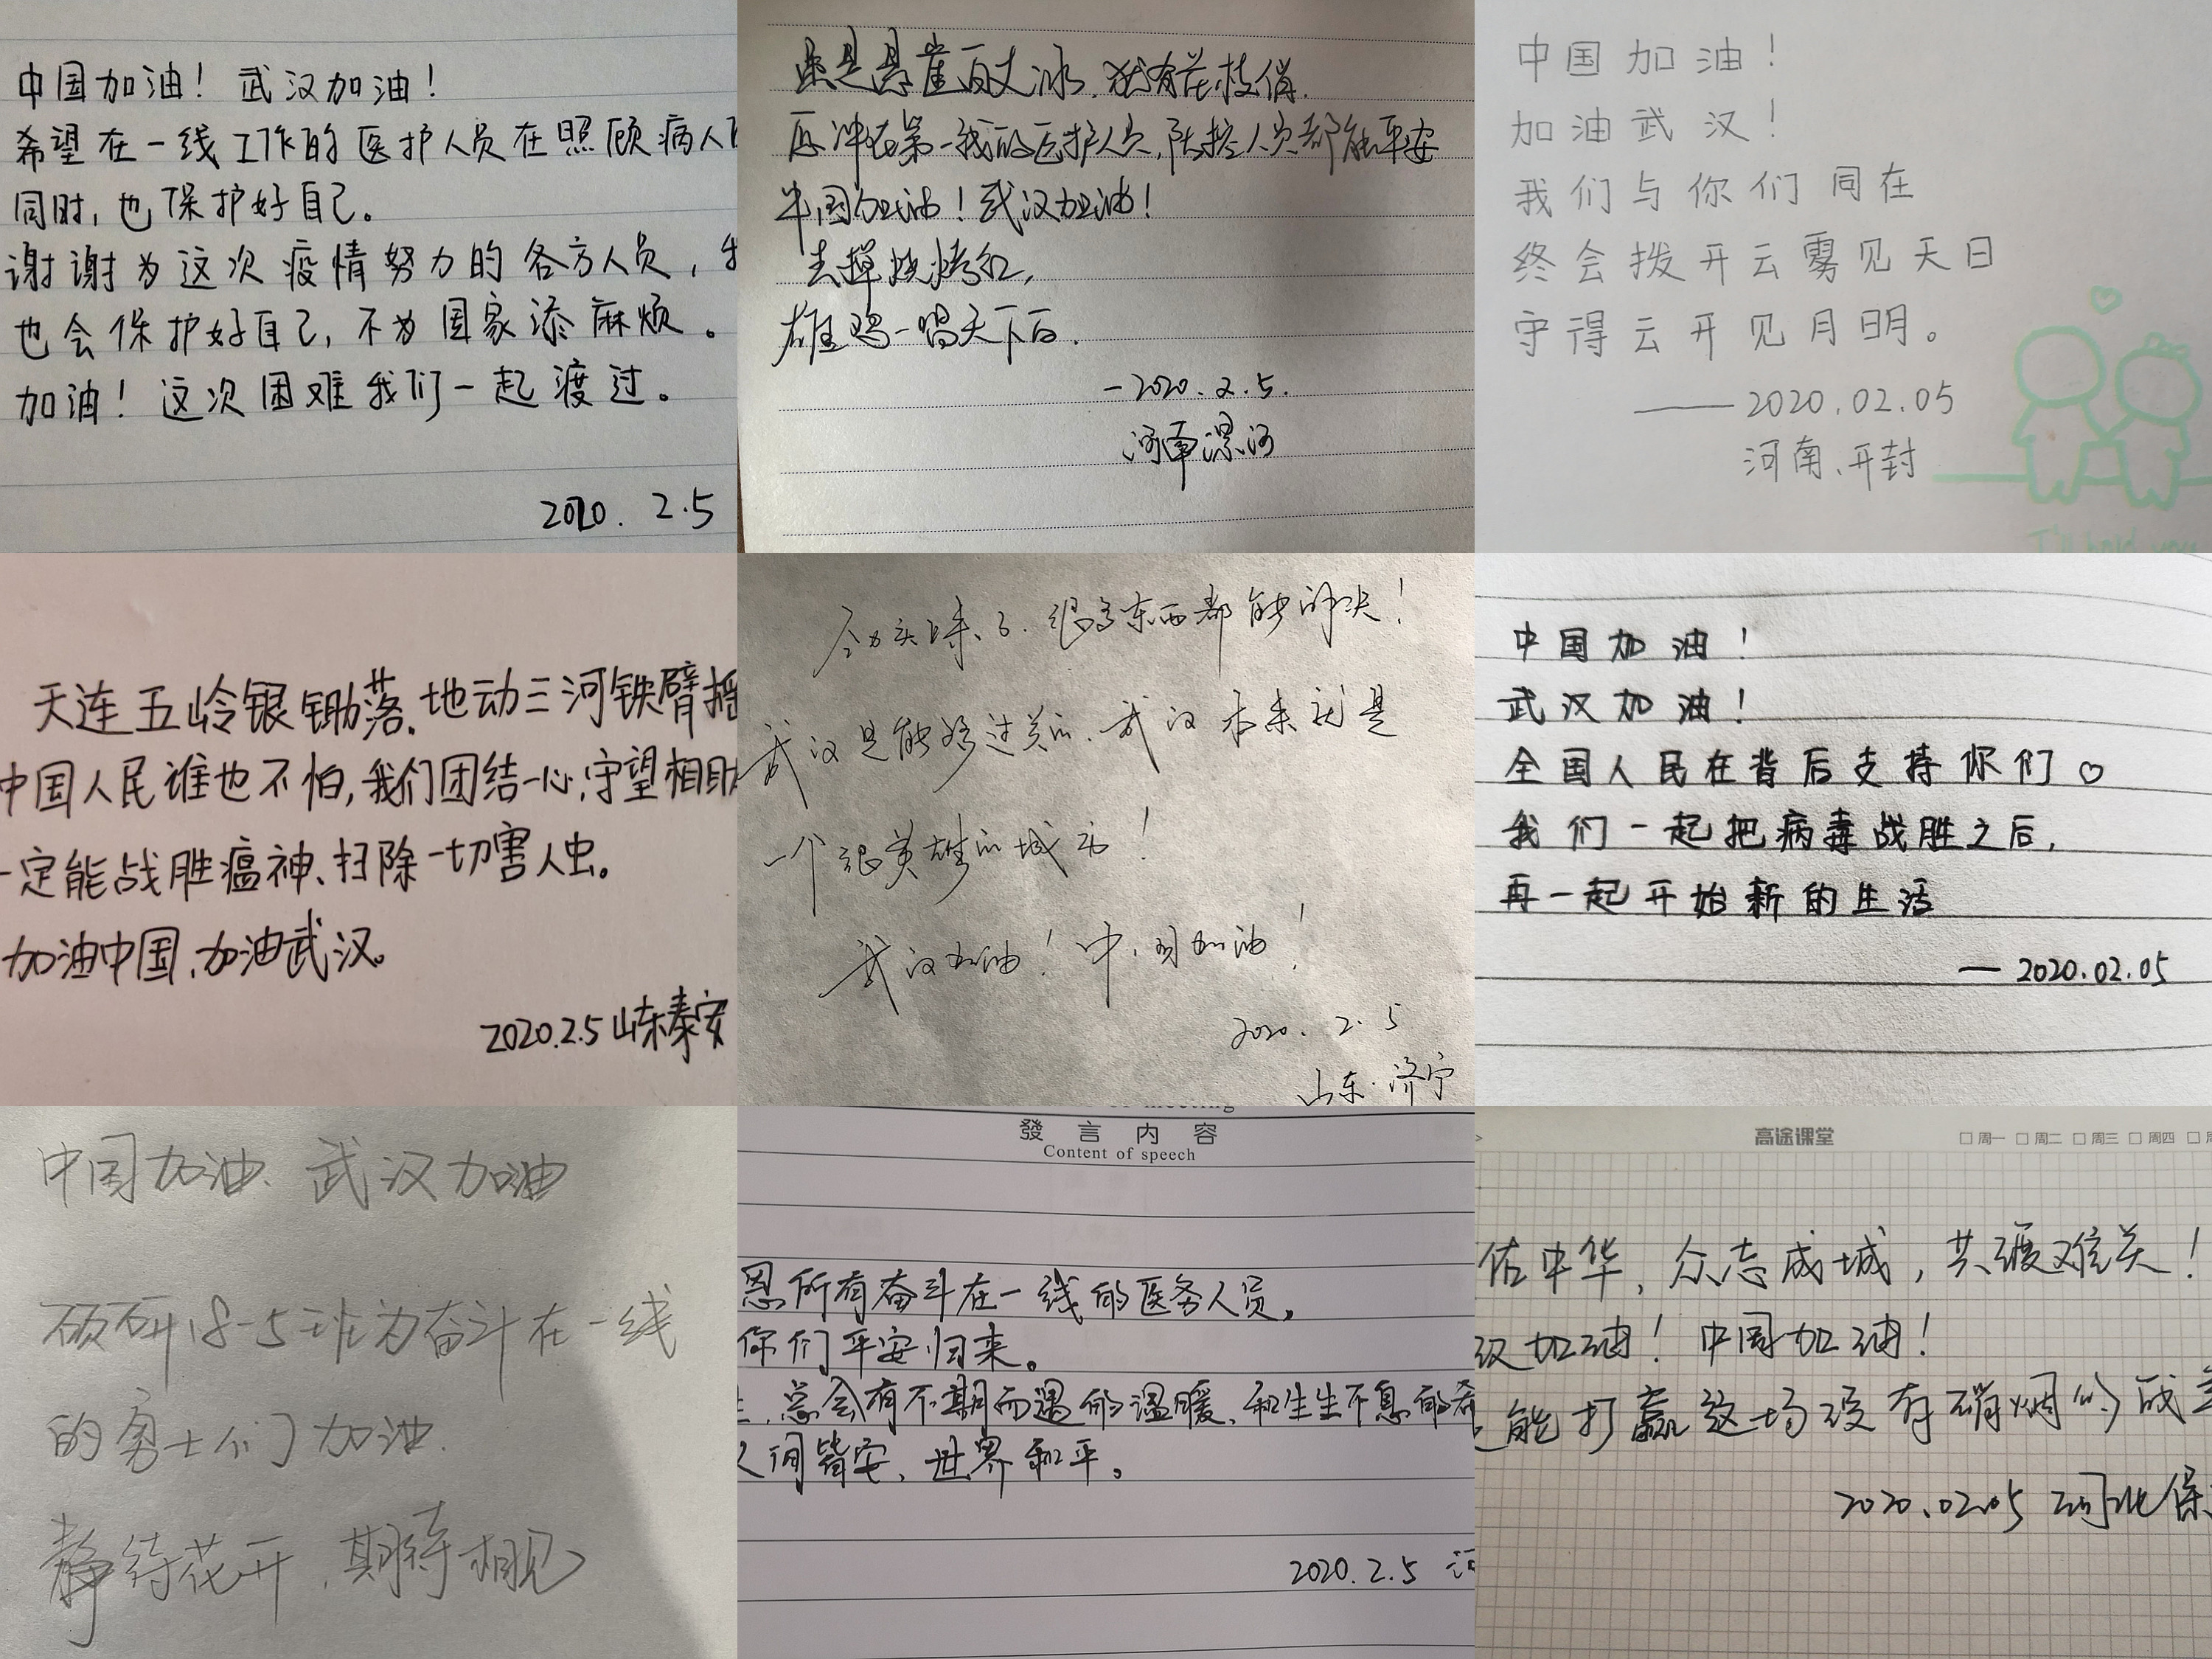 中国加油！武汉加油！
希望在一线工作的医护人员在照顾病人
同时，也保护好自己。
谢谢为这次疫情努力的各方人员，
也会保护好自己，不为国家添麻烦。
加油！这次困难我们一起渡过。
2020. 2.5
已是悬崖百丈冰，犹有花枝俏.
愿冲在第一线的医护人员,防控人员都能平安
中国加油！武汉加油！
去掉烧烤红，
雄鸡一唱天下白.
—2020.2.5.
河南漯河
中国加油！
加油武汉！
我们与你们同在
终会拨开云雾见天日
守得云开见月明。
——2020.02.05
河南、开封
I'll hold you
天连五岭银锄落，地动三河铁臂摇
中国人民谁也不怕，我们团结一心，守望相助
一定能战胜瘟神、扫除一切害人虫。
加油中国，加油武汉。
2020.2.5 山东泰安
很多东西都能解决！
武汉是能够过关的，武汉本来就是
一个很英雄的城市！
武汉加油！中国加油！
2020. 2. 5
山东·济宁
中国加油！
武汉加油！
全国人民在背后支持你们♡
我们一起把病毒战胜之后，
再一起开始新的生活
— 2020.02.05
中国加油、武汉加油
硕研18-5班为奋斗在一线
的勇士们加油.
静待花开，期待相见
發言内容
Content of speech
恩所有奋斗在一线的医务人员，
你们平安归来。
总会有不期而遇的温暖、和生生不息的希
人间皆安，世界和平。
2020.2.5
高途课堂
□周一 □周二 □周三 □周四
佑中华，众志成城，共渡难关！
汉加油！中国加油！
能打赢这场没有硝烟的战
2020.02.05 河北保